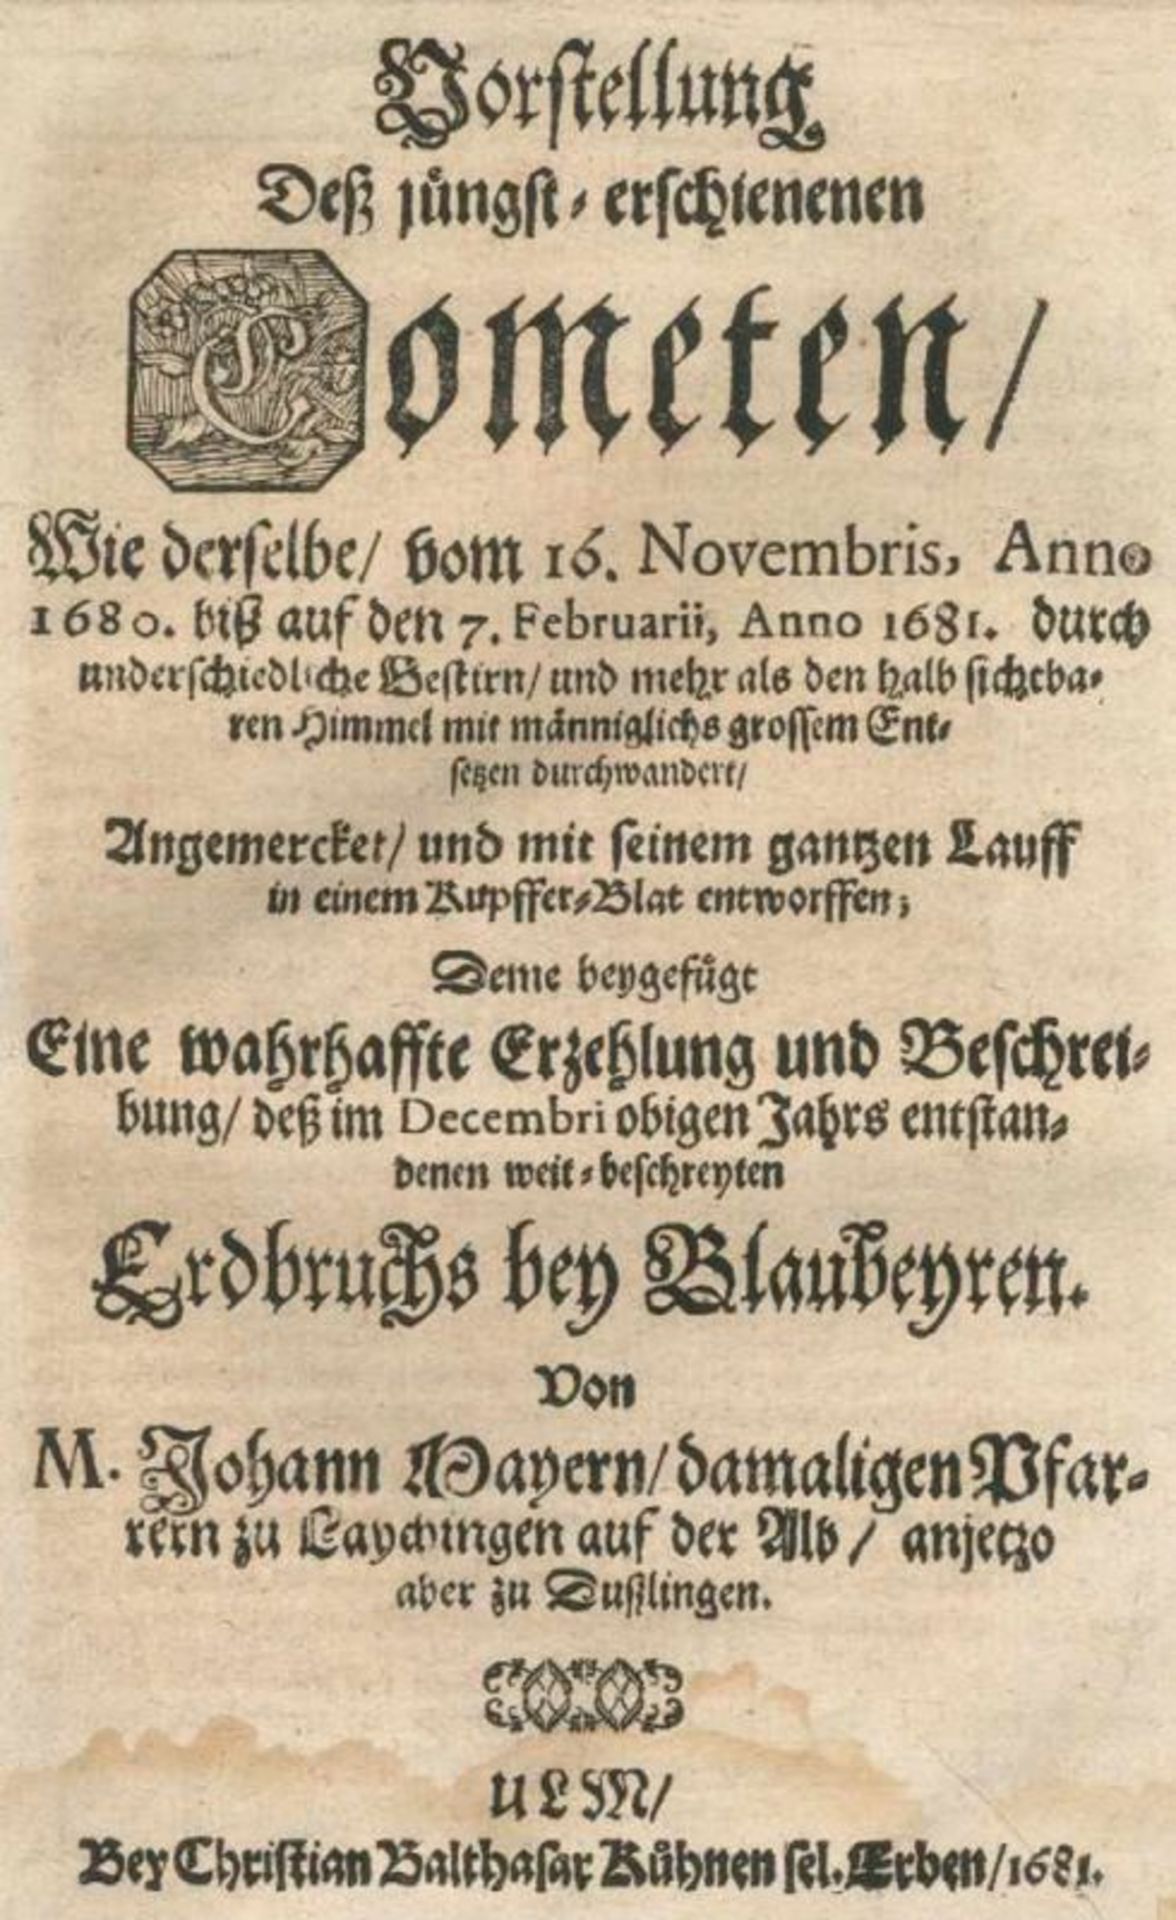 Vorstellung
Deß jüngst-erschienenen
Cometen/
Wie derselbe/ vom 16. Novembris, Anno
1680. biß auf den 7. Februarii, Anno 1681. durch
underschiedliche Gestirn/ und mehr als den halb sichtba-
ren Himmel mit männiglichs grossem Ent-
setzen durchwandert/
Angemercket/ und mit seinem gantzen Lauff
in einem Kupffer-Blat entworffen;
Deme beygefügt
Eine wahrhaffte Erzehlung und Beschrei-
bung/ deß im Decembri obigen Jahrs entstan-
denen weit-beschreyten
Erdbruchs bey Blaubeyren.
Von
M. Johann Mayern/ damaligen Pfar-
rern zu Laychingen auf der Alb/ anjetzo
aber zu Dußlingen.
ULM/
Bey Christian Balthasar Kühnen sel. Erben/ 1681.